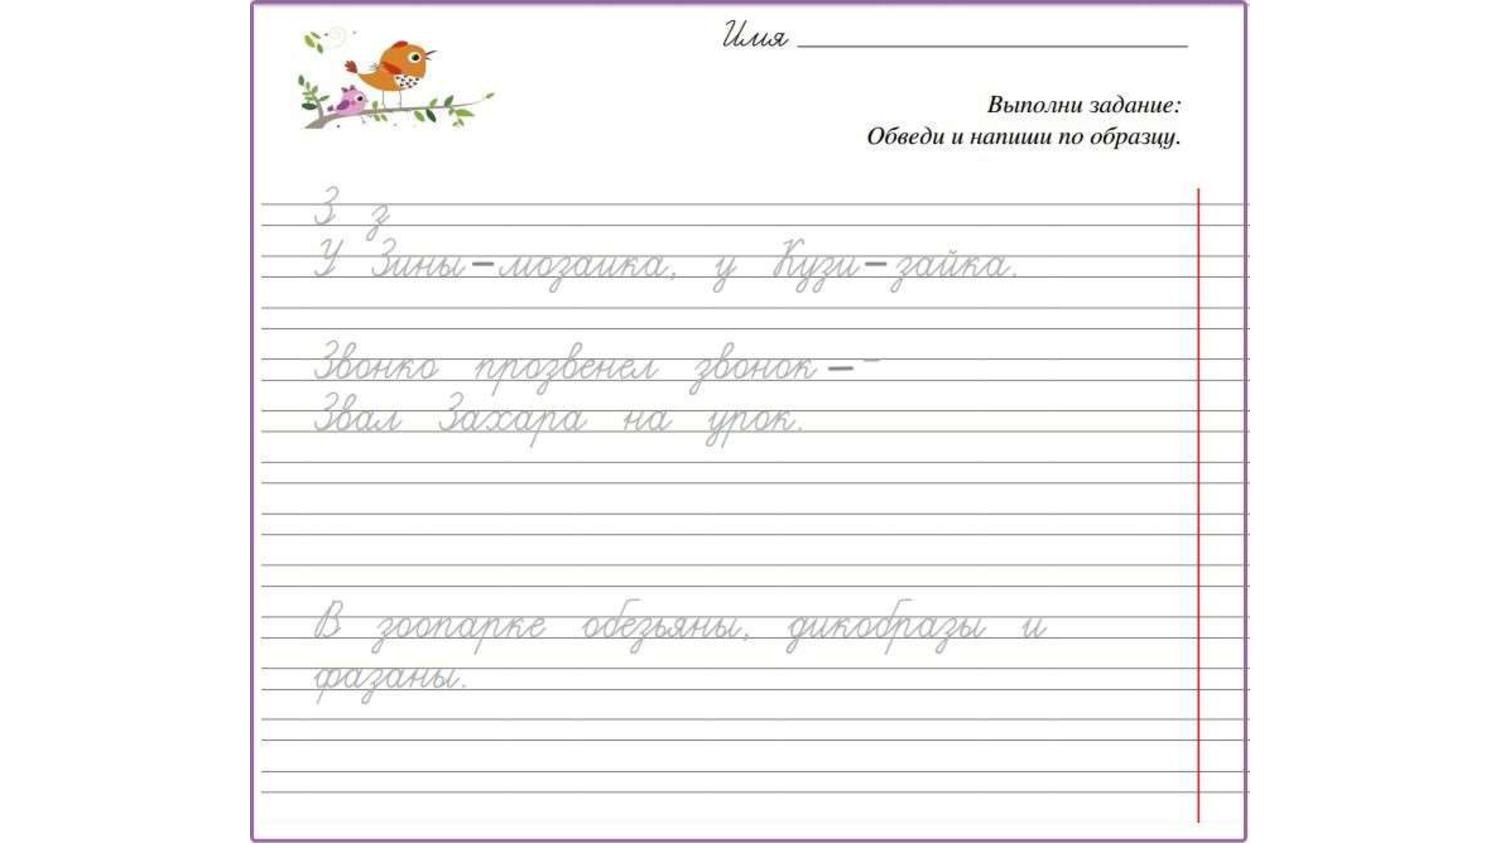 Имя
Выполни задание:
Обведи и напиши по образцу.
З з
У Зины – мозаика, у Кузи – зайка.
Звонко прозвенел звонок – -
Звал Захара на урок.
В зоопарке обезьяны, дикобразы и
фазаны.